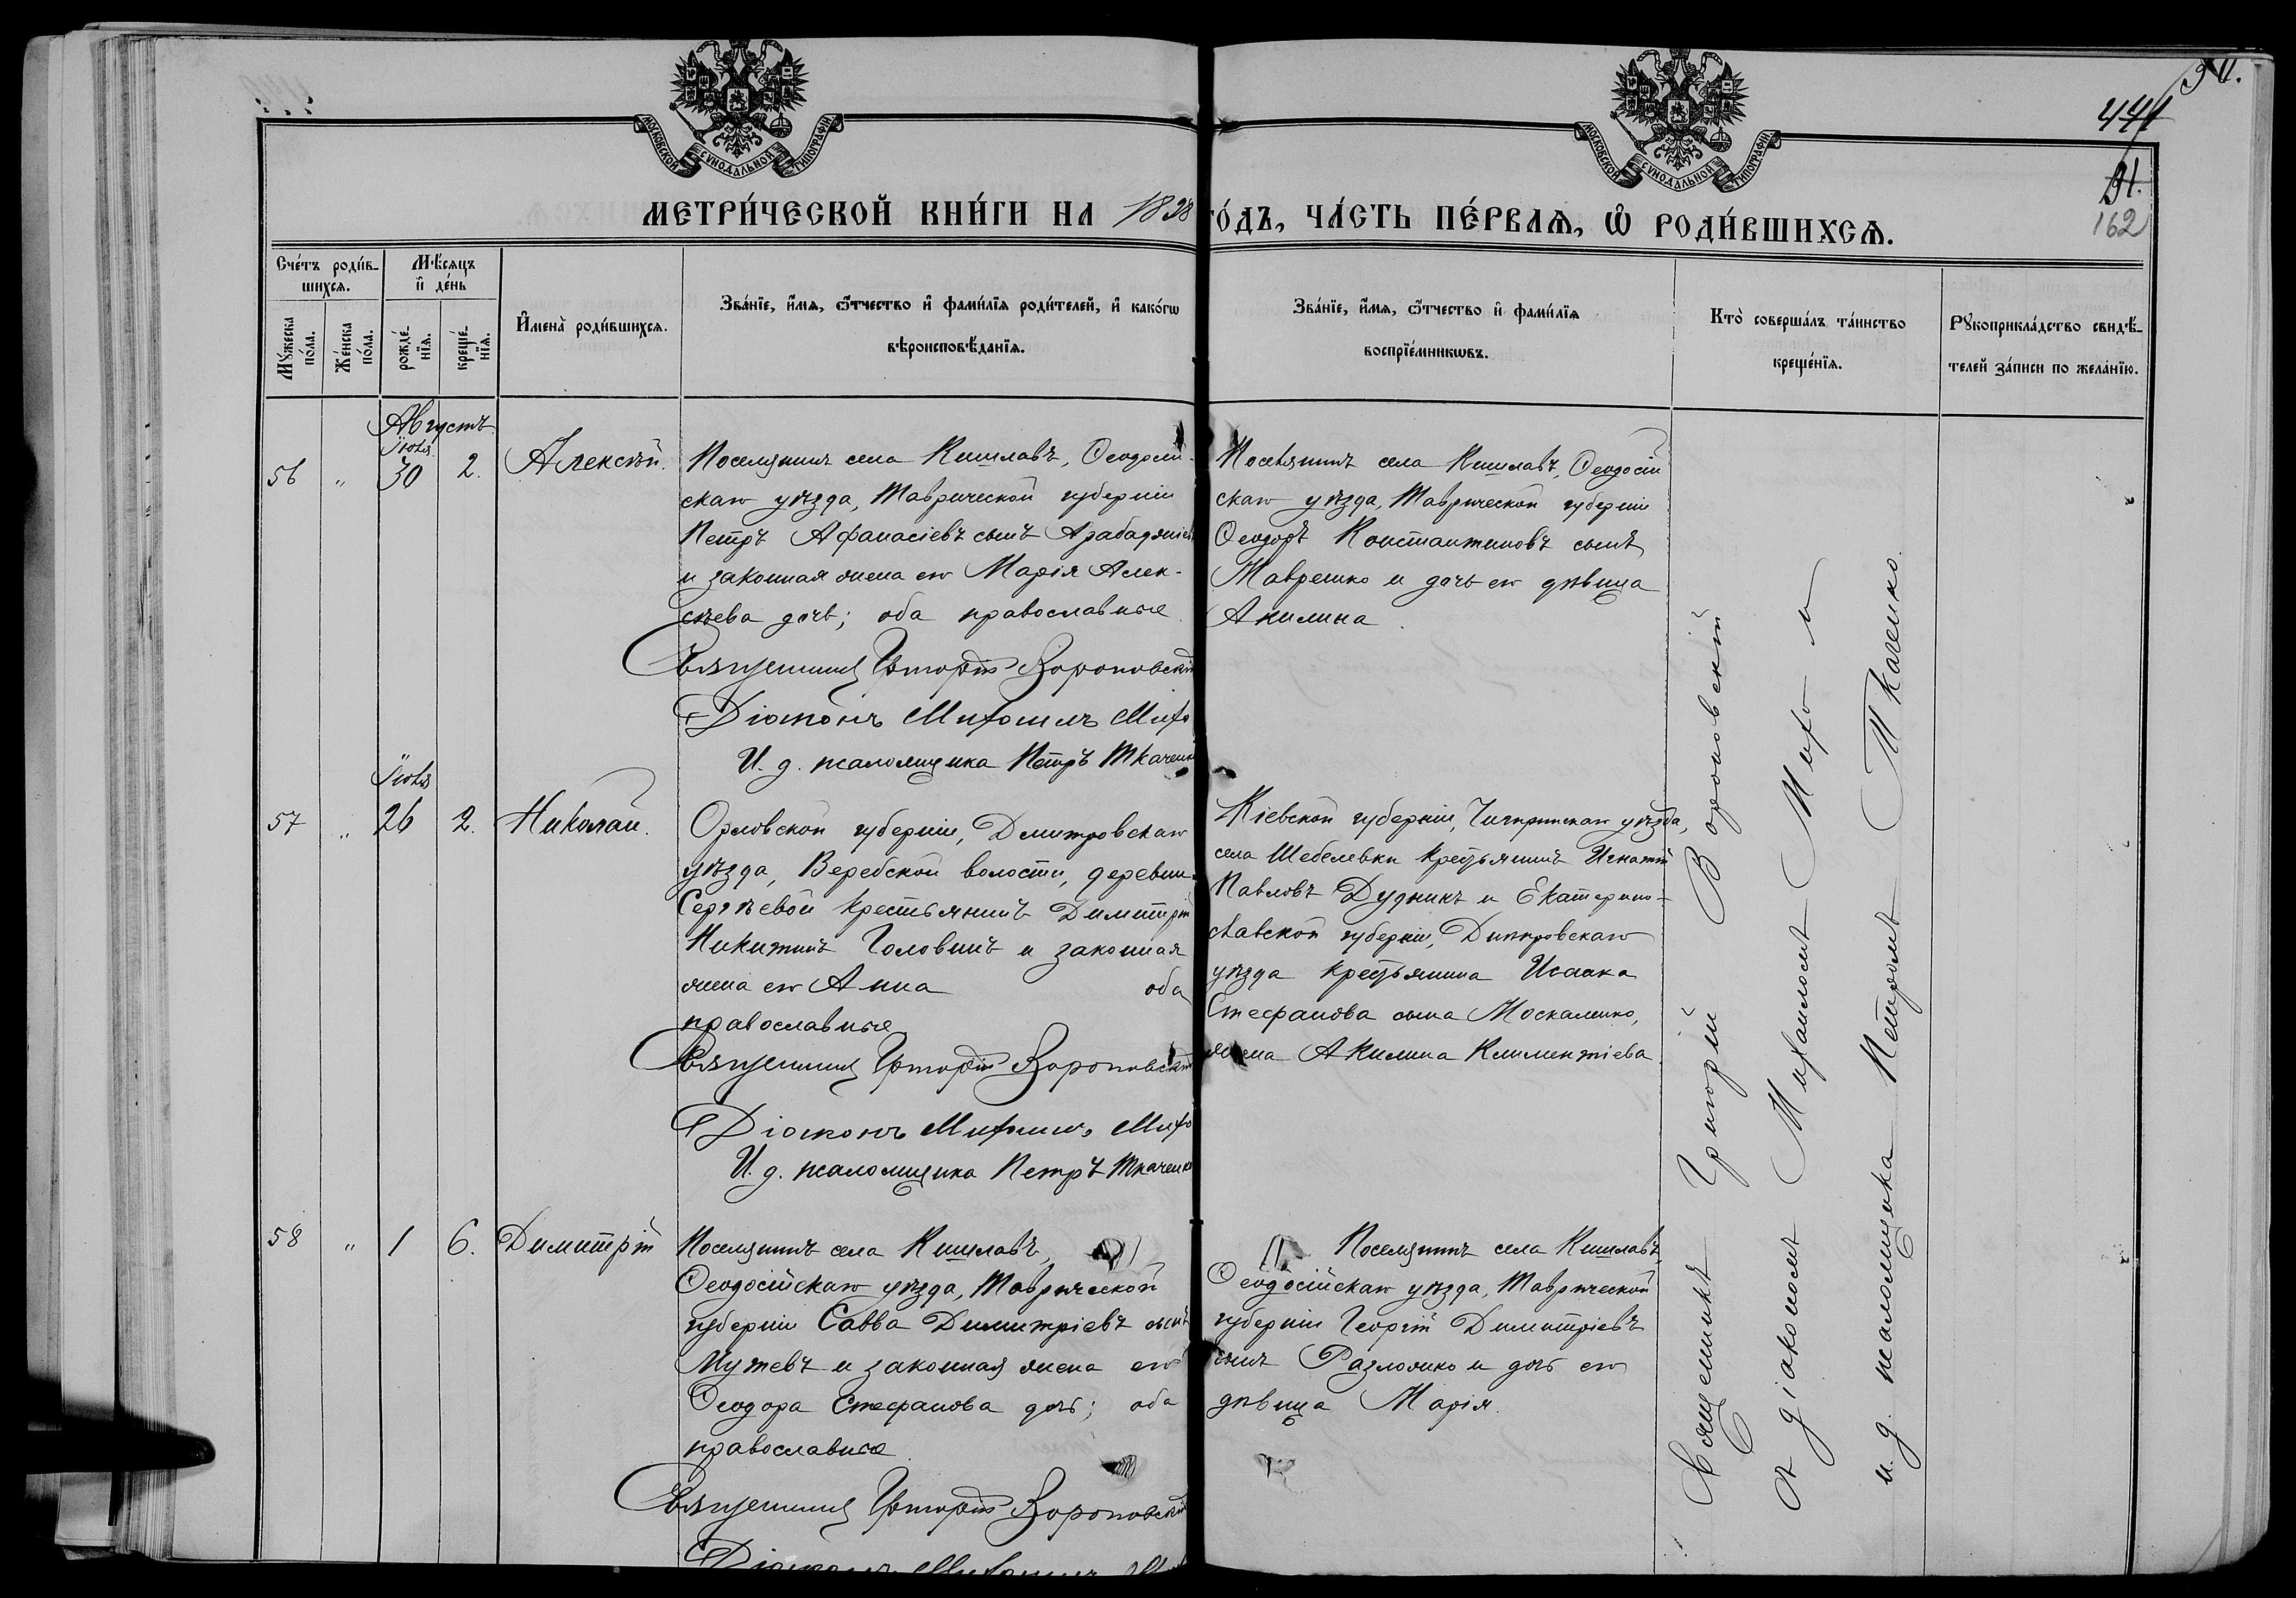 МОСКОВСКОЙ СѴНОДАЛЬНОЙ ТИПОГРАФІИ
МОСКОВСКОЙ СѴНОДАЛЬНОЙ ТИПОГРАФІИ
441
91.
162
МЕТРИ́ЧЕСКОЙ КНИ́ГИ НА 1898 ГО́ДЪ, ЧА́СТЬ ПЕ́РВАѦ, Ѡ҆ РОДИ́ВШИХСѦ.
Сче́тъ роди́в-
шихся.
Мꙋ́жеска по́ла.
Же́нска по́ла.
Мѣ́сяцъ и҆ де́нь
рожде́нїя.
креще́нїя.
И҆мена̀ роди́вшихся.
Зва́нїе, и҆́мя, ѻ҆́тчество и҆ фами́лїя роди́телей, и҆ како́гѡ
вѣроисповѣ́данїя.
Зва́нїе, и҆́мя, ѻ҆́тчество и҆ фами́лїя
воспрїе́мникѡвъ.
Кто̀ соверша́лъ та́инство
креще́нїя.
Рꙋкоприкла́дство свидѣ́-
телей за́писи по жела́нїю.
Августъ
56 " Іюля 30 2. Алексѣй.
Поселянинъ села Кишлавъ, Ѳеодосій-
скаго уѣзда, Таврической губерніи
Петръ Афанасіевъ сынъ Арабаджіевъ
и законная жена его Марія Алек-
сѣева дочь; оба православные.
Священникъ Григорій Вороновскій
Діаконъ Михаилъ Михо
И. д. псаломщика Петръ Ткаченко
Поселянинъ села Кишлавъ, Ѳеодосій
скаго уѣзда, Таврической губерніи
Ѳеодоръ Константиновъ сынъ
Маврешко и дочь его дѣвица
Акилина.
57 " Іюля 26 2. Николай.
Орловской губерніи, Дмитровскаго
уѣзда, Веребской волости, деревни
Сергѣевой крестьянинъ Димитрій
Никитинъ Головинъ и законная
жена его Анна оба
православные
Священникъ Григорій Вороновскій
Діаконъ Михаилъ Михо
И. д. псаломщика Петръ Ткаченко
Кіевской губерніи, Чигиринскаго уѣзда,
села Шебелевки крестьянинъ Игнатій
Павловъ Дудникъ и Екатерино-
славской губерніи, Днѣпровскаго
уѣзда крестьянина Исаака
Стефанова сына Москаленко,
жена Акилина Климентіева.
58 " 1 6. Димитрій
Поселянинъ села Кишлавъ,
Ѳеодосійскаго уѣзда, Таврической
губерніи Савва Димитріевъ сынъ
Мутевъ и законная жена его
Ѳеодора Стефанова дочь; оба
православные
Священникъ Григорій Вороновскій
Діаконъ Михаилъ
Поселянинъ села Кишлавъ,
Ѳеодосійскаго уѣзда, Таврической
губерніи Георгій Димитріевъ
сынъ Разложко и дочь его
дѣвица Марія.
Священникъ Григорій Вороновскій
съ діакономъ Михаиломъ Михо и
и. д. псаломщика Петромъ Ткаченко.